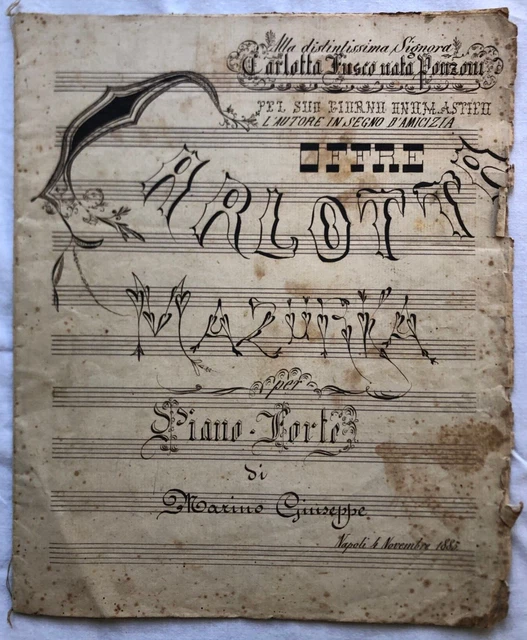 Alla distintissima Signora
Carlotta Fusco nata Ponzoni
PEL SUO GIORNO ONOMASTICO
L'AUTORE IN SEGNO D'AMICIZIA
OFFRE
CARLOTTA
MAZURKA
per
Piano-Forte
di
Marino Giuseppe
Napoli 4 Novembre 1885